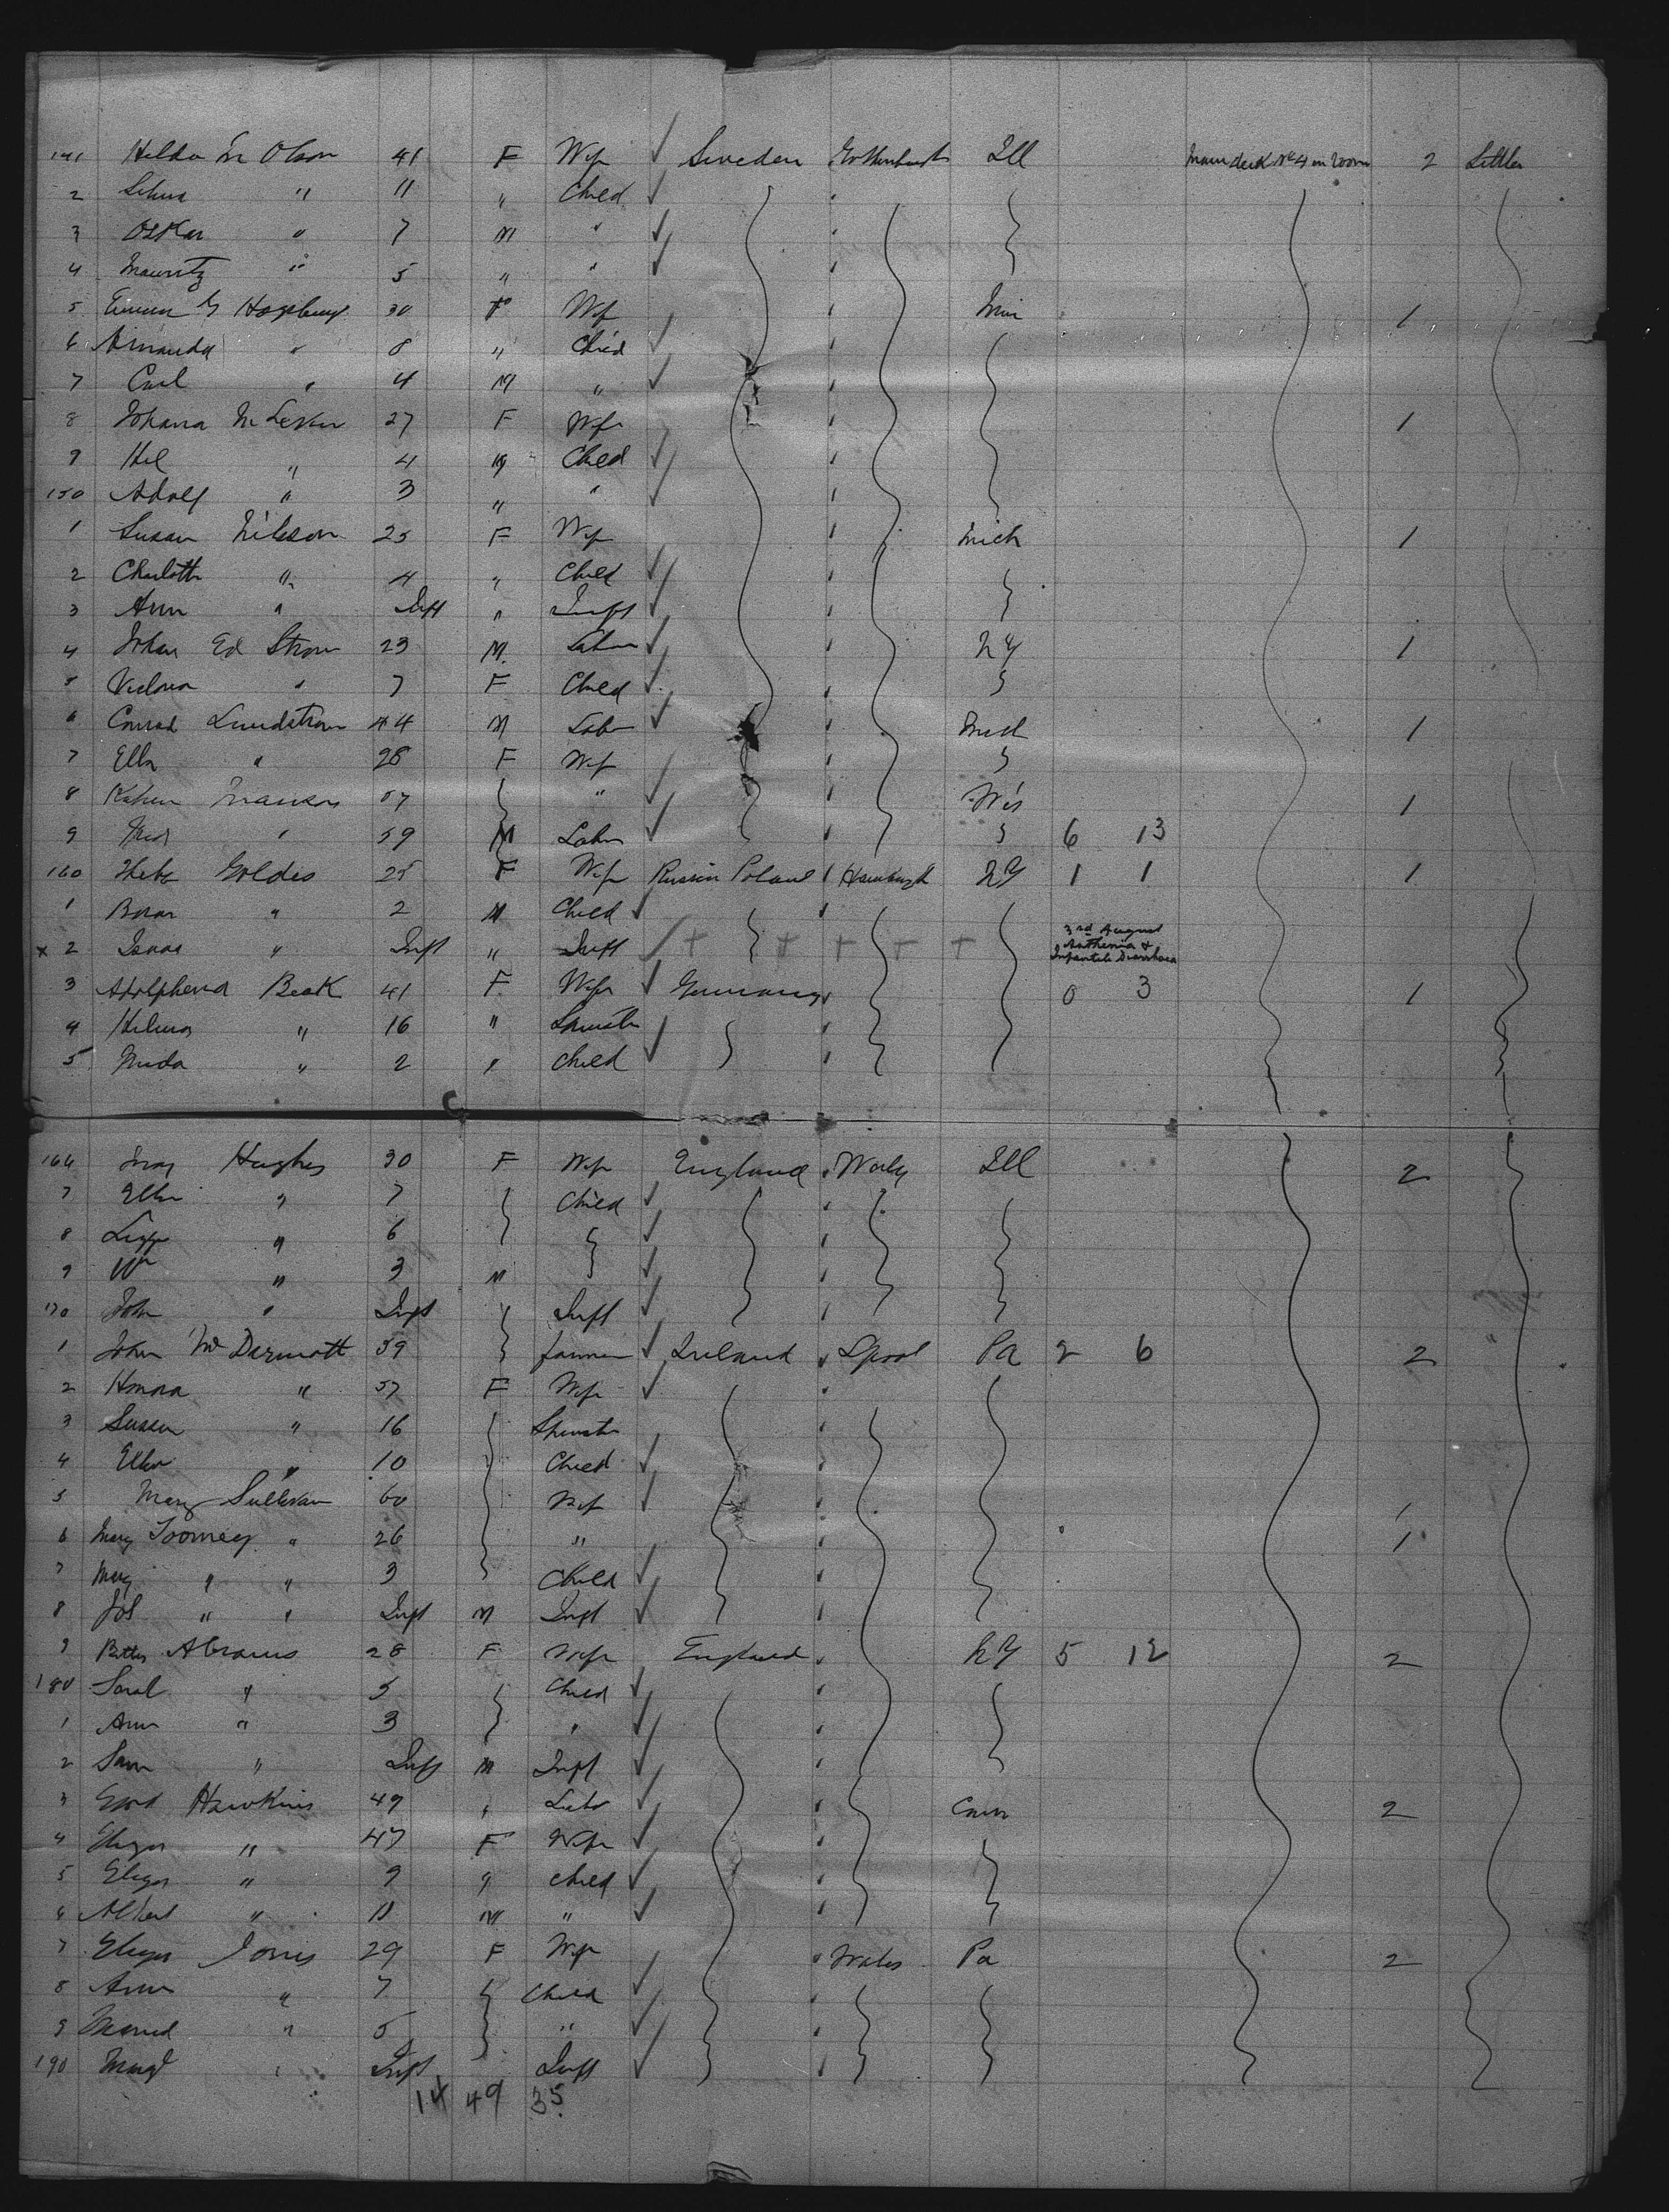 141 Hilda M Olson 41 F Wife Sweden Gothenburg Ill Main deck No 4 in room 2 Settler
2 " 11 " Child
3 Oskar " 7 M "
4 Mauritz " 5 " "
5 30 F Wife Min 1
6 Amanda " 8 " Child
7 Carl " 4 M "
8 Johana M 27 F Wife 1
9 " 4 M Child
150 Adolf " 3 " "
1 Susan Nilsson 25 F Wife Mich 1
2 Charlotte " 4 " Child
3 Ann " Inft " Inft
4 Johan Ed Strom 23 M. Labr N Y 1
5 Victoria " 7 F Child
6 Conrad Lundstrom 44 M Labr Mich 1
7 Ella " 28 F Wife
8 57 " Wis 1
9 " 59 M Labr 6 13
160 Goldis 25 F Wife Russia Poland Hamburgh N Y 1 1 1
1 " 2 M Child
x 2 Isaac " Inft " Inft + + + + + 3rd August Asthenia + Infantile Diarrhoea
3 Adolphena Beak 41 F Wife Germany 0 3 1
4 Hilma " 16 " Spinster
5 " 2 " Child
166 May Hughes 30 F Wife England Wales Ill 2
7 Ellen " 7 Child
8 " 6
9 Wm " 3 M
170 John " Inft Inft
1 John McDermott 59 farmer Ireland Lpool Pa 2 6 2
2 Honora " 57 F Wife
3 Susan " 16 Spinster
4 Ellen " 10 Child
5 Mary Sullivan 60 Wife 1
6 Mary Toomey " 26 " 1
7 Mary " " 3 Child
8 " " Inft M Inft
9 Abrams 28 F Wife England N Y 5 12 2
180 Sarah " 5 Child
1 Ann " 3 "
2 Sam " Inft M Inft
3 Hawkins 49 " Labr Conn 2
4 Eliza " 47 F Wife
5 Eliza " 9 " Child
6 Albert " 11 M "
7 Eliza Jones 29 F Wife Wales Pa 2
8 Ann " 7 Child
9 " 5 "
190 Margt " Inft Inft
14 49 35.